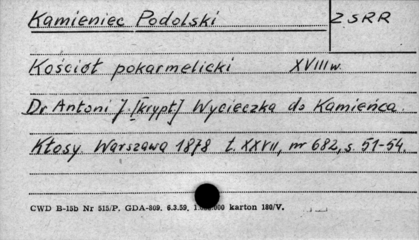 Kamieniec Podolski
ZSRR
Kościół pokarmelicki XVIII w.
Dr Antoni J. [krypt] Wycieczka do Kamieńca.
Kłosy. Warszawa 1878 t. XXVII, nr 682, s. 51-54.
CWD B-15b Nr 515/P. GDA-809. 6.3.59. karton 180/V.